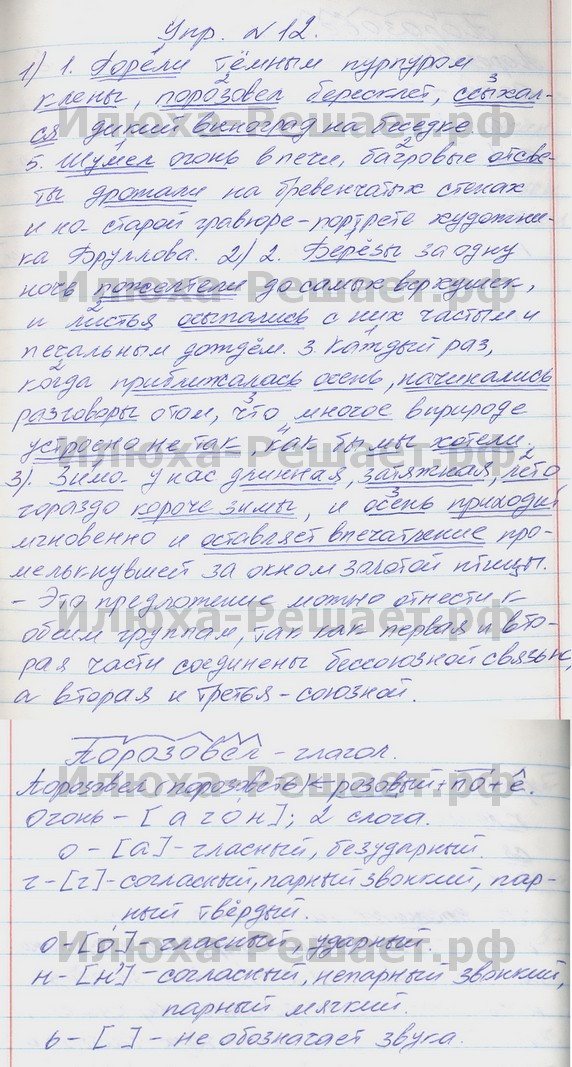 Упр. №12.
1) 1. Горели тёмным пурпуром
клёны, порозовел бересклет, ссыхал-
ся дикий виноград на беседке.
5. Шумел огонь в печи, багровые отсве-
ты дрожали на бревенчатых стенах
и на старой гравюре - портрете художни-
ка Бруллова. 2) 2. Берёзы за одну
ночь пожелтели до самых верхушек,
и листья осыпались с них частым и
печальным дождём. 3. Каждый раз,
когда приближалась осень, начинались
разговоры о том, что многое в природе
устроено не так, как бы мы хотели.
3). Зима у нас длинная, затяжная, лето
гораздо короче зимы, и осень приходит
мгновенно и оставляет впечатление про-
мелькнувшей за окном золотой птицы.
- Это предложение можно отнести к
обеим группам, так как первая и вто-
рая части соединены бессоюзной связью,
а вторая и третья - союзной.
Порозовел - глагол.
Порозовел (порозоветь) ← розовый + по + е.
Огонь - [агон']; 2 слога.
о - [а] - гласный, безударный.
г - [г] - согласный, парный звонкий, пар-
ный твёрдый.
о - [о] - гласный, ударный.
н - [н'] - согласный, непарный звонкий,
парный мягкий.
ь - [ ] - не обозначает звука.
Илюха-Решает.рф
Илюха-Решает.рф
Илюха-Решает.рф
Илюха-Решает.рф
Илюха-Решает.рф
Илюха-Решает.рф
Илюха-Решает.рф
Илюха-Решает.рф
Илюха-Решает.рф